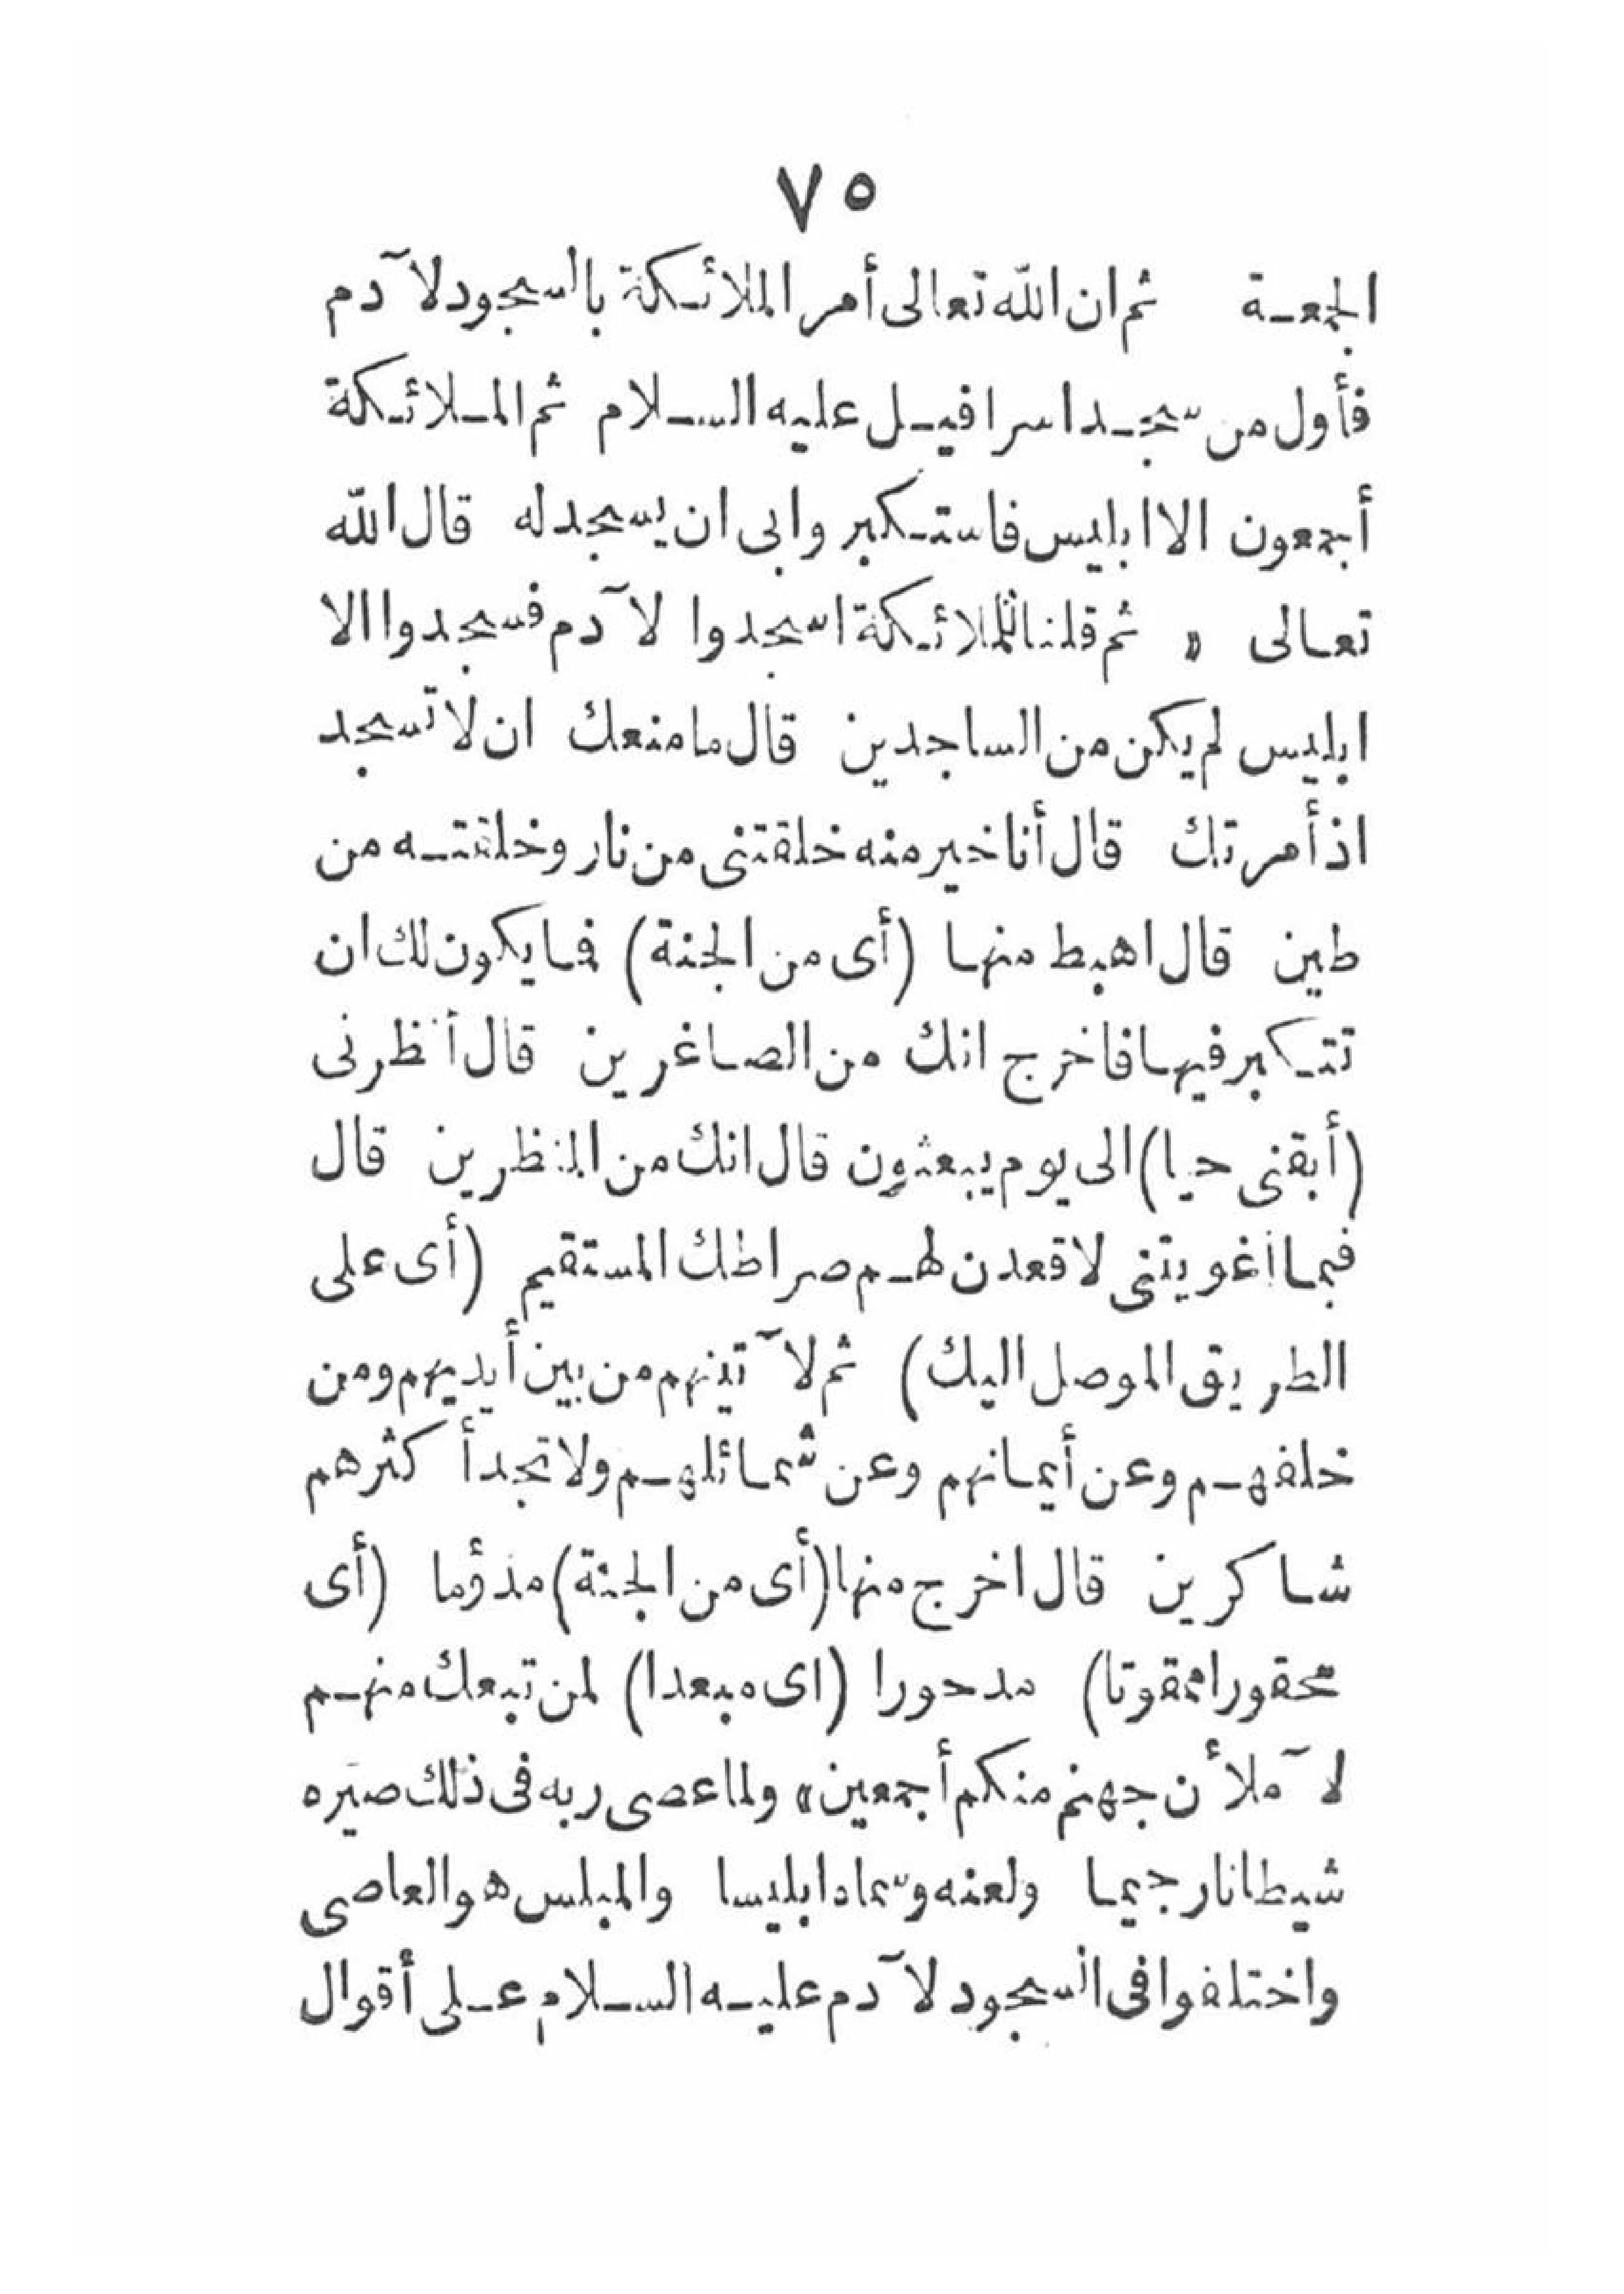 ٧٥
الجمعة ثم ان الله تعالى أمر الملائكة بالسجود لآدم
فأول من سجد اسرافيل عليه السلام ثم الملائكة
أجمعون الا ابليس فاستكبر وابى ان يسجد له قال الله
تعالى « ثم قلنا للملائكة اسجدوا لآدم فسجدوا الا
ابليس لم يكن من الساجدين قال ما منعك ان لا تسجد
اذ أمرتك قال أنا خير منه خلقتنى من نار وخلقته من
طين قال اهبط منها (أى من الجنة) فما يكون لك ان
تتكبر فيها فاخرج انك من الصاغرين قال أنظرنى
(أبقنى حيا) الى يوم يبعثون قال انك من المنظرين قال
فبما أغويتنى لاقعدن لهم صراطك المستقيم (أى على
الطريق الموصل اليك) ثم لآتينهم من بين أيديهم ومن
خلفهم وعن أيمانهم وعن شمائلهم ولا تجد أكثرهم
شاكرين قال اخرج منها (أى من الجنة) مذؤما (أى
محقورا ممقوتا) مدحورا (اى مبعدا) لمن تبعك منهم
لآملأن جهنم منكم أجمعين» ولما عصى ربه فى ذلك صيّره
شيطانا رجيما ولعنه وسماه ابليسا والمبلس هو العاصى
واختلفوا فى السجود لآدم عليه السلام على أقوال